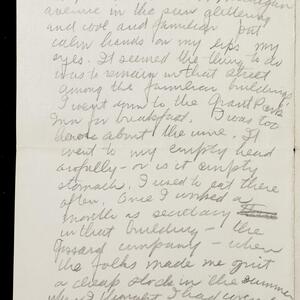 avenue in the sun glittering
and cool and familiar put
calm hands on my lips my
eyes. It seemed the thing to do
was to remain in that street
among the familiar buildings.
I went down to the Grant Park
Inn for breakfast. I was too
about the wine. It
went to my empty head
awfully - or is it empty
stomach. I used to eat there
often. Once I worked a
month as secretary
in that building - the
Gossard company - when
the folks made me quit
a cheap stock in the summer
when I thought I had